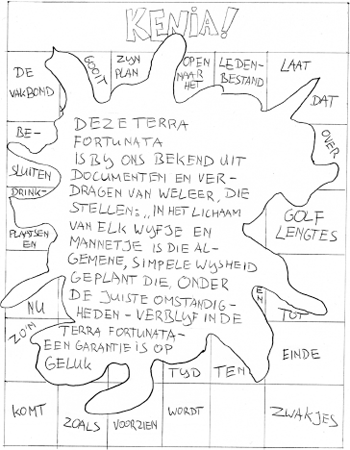 KENIA!
DE
VAKBOND
GOOIT
ZYN
PLAN
OPEN
NAAR
HET
LEDEN-
BESTAND
LAAT
DAT
OVER
GOLF
LENGTES
TOT
EN
EINDE
ZWAKJES
BE-
SLUITEN
DRINK-
PLAATSEN
EN
NU
ZO'N
KOMT
ZOALS
VOORZIEN
WORDT
TYD
TEN
DEZE TERRA
FORTUNATA
IS BY ONS BEKEND UIT
DOCUMENTEN EN VER-
DRAGEN VAN WELEER, DIE
STELLEN: „IN HET LICHAAM
VAN ELK WYFJE EN
MANNETJE IS DIE AL-
GEMENE, SIMPELE WYSHEID
GEPLANT DIE, ONDER
DE JUISTE OMSTANDIG-
HEDEN - VERBLYF IN DE
TERRA FORTUNATA -
EEN GARANTIE IS OP
GELUK